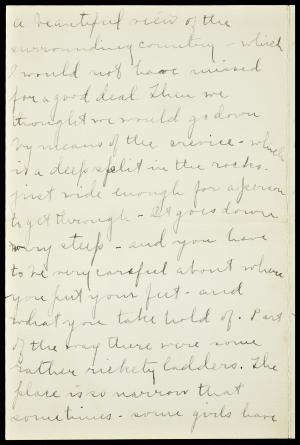 a beautiful view of the
surrounding country - which
I would not have missed
for a good deal. Then we
thought we would go down
by means of the crevice - which
is a deep split in the rocks.
just wide enough for a person
to get through - It goes down
very steep - and you have
to be very careful about where
you put your feet - and
what you take hold of. Part
of the way there were some
rather rickety ladders. The
place is so narrow that
sometimes - some girls have